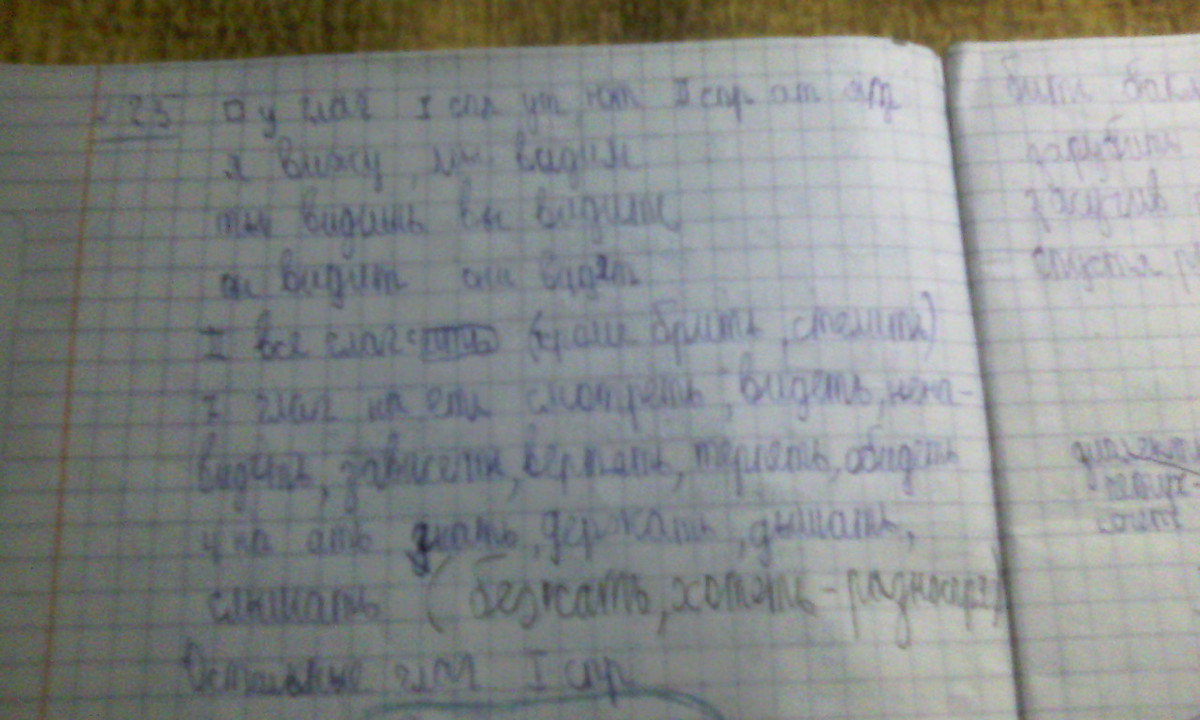 23 у глаг I спр ут, ют II спр ат ят
я вижу, мы видим
ты видишь вы видите
он видит они видят
все глаг (кроме брить, стелить)
7 глаг на еть смотреть, видеть, нена-
видеть, зависеть, вертеть, терпеть, обидеть
4 на ать гнать, держать, дышать,
слышать (бежать, хотеть - разноспр)
Остальные глаг I спр
бить
зарубить
засучив
спустя